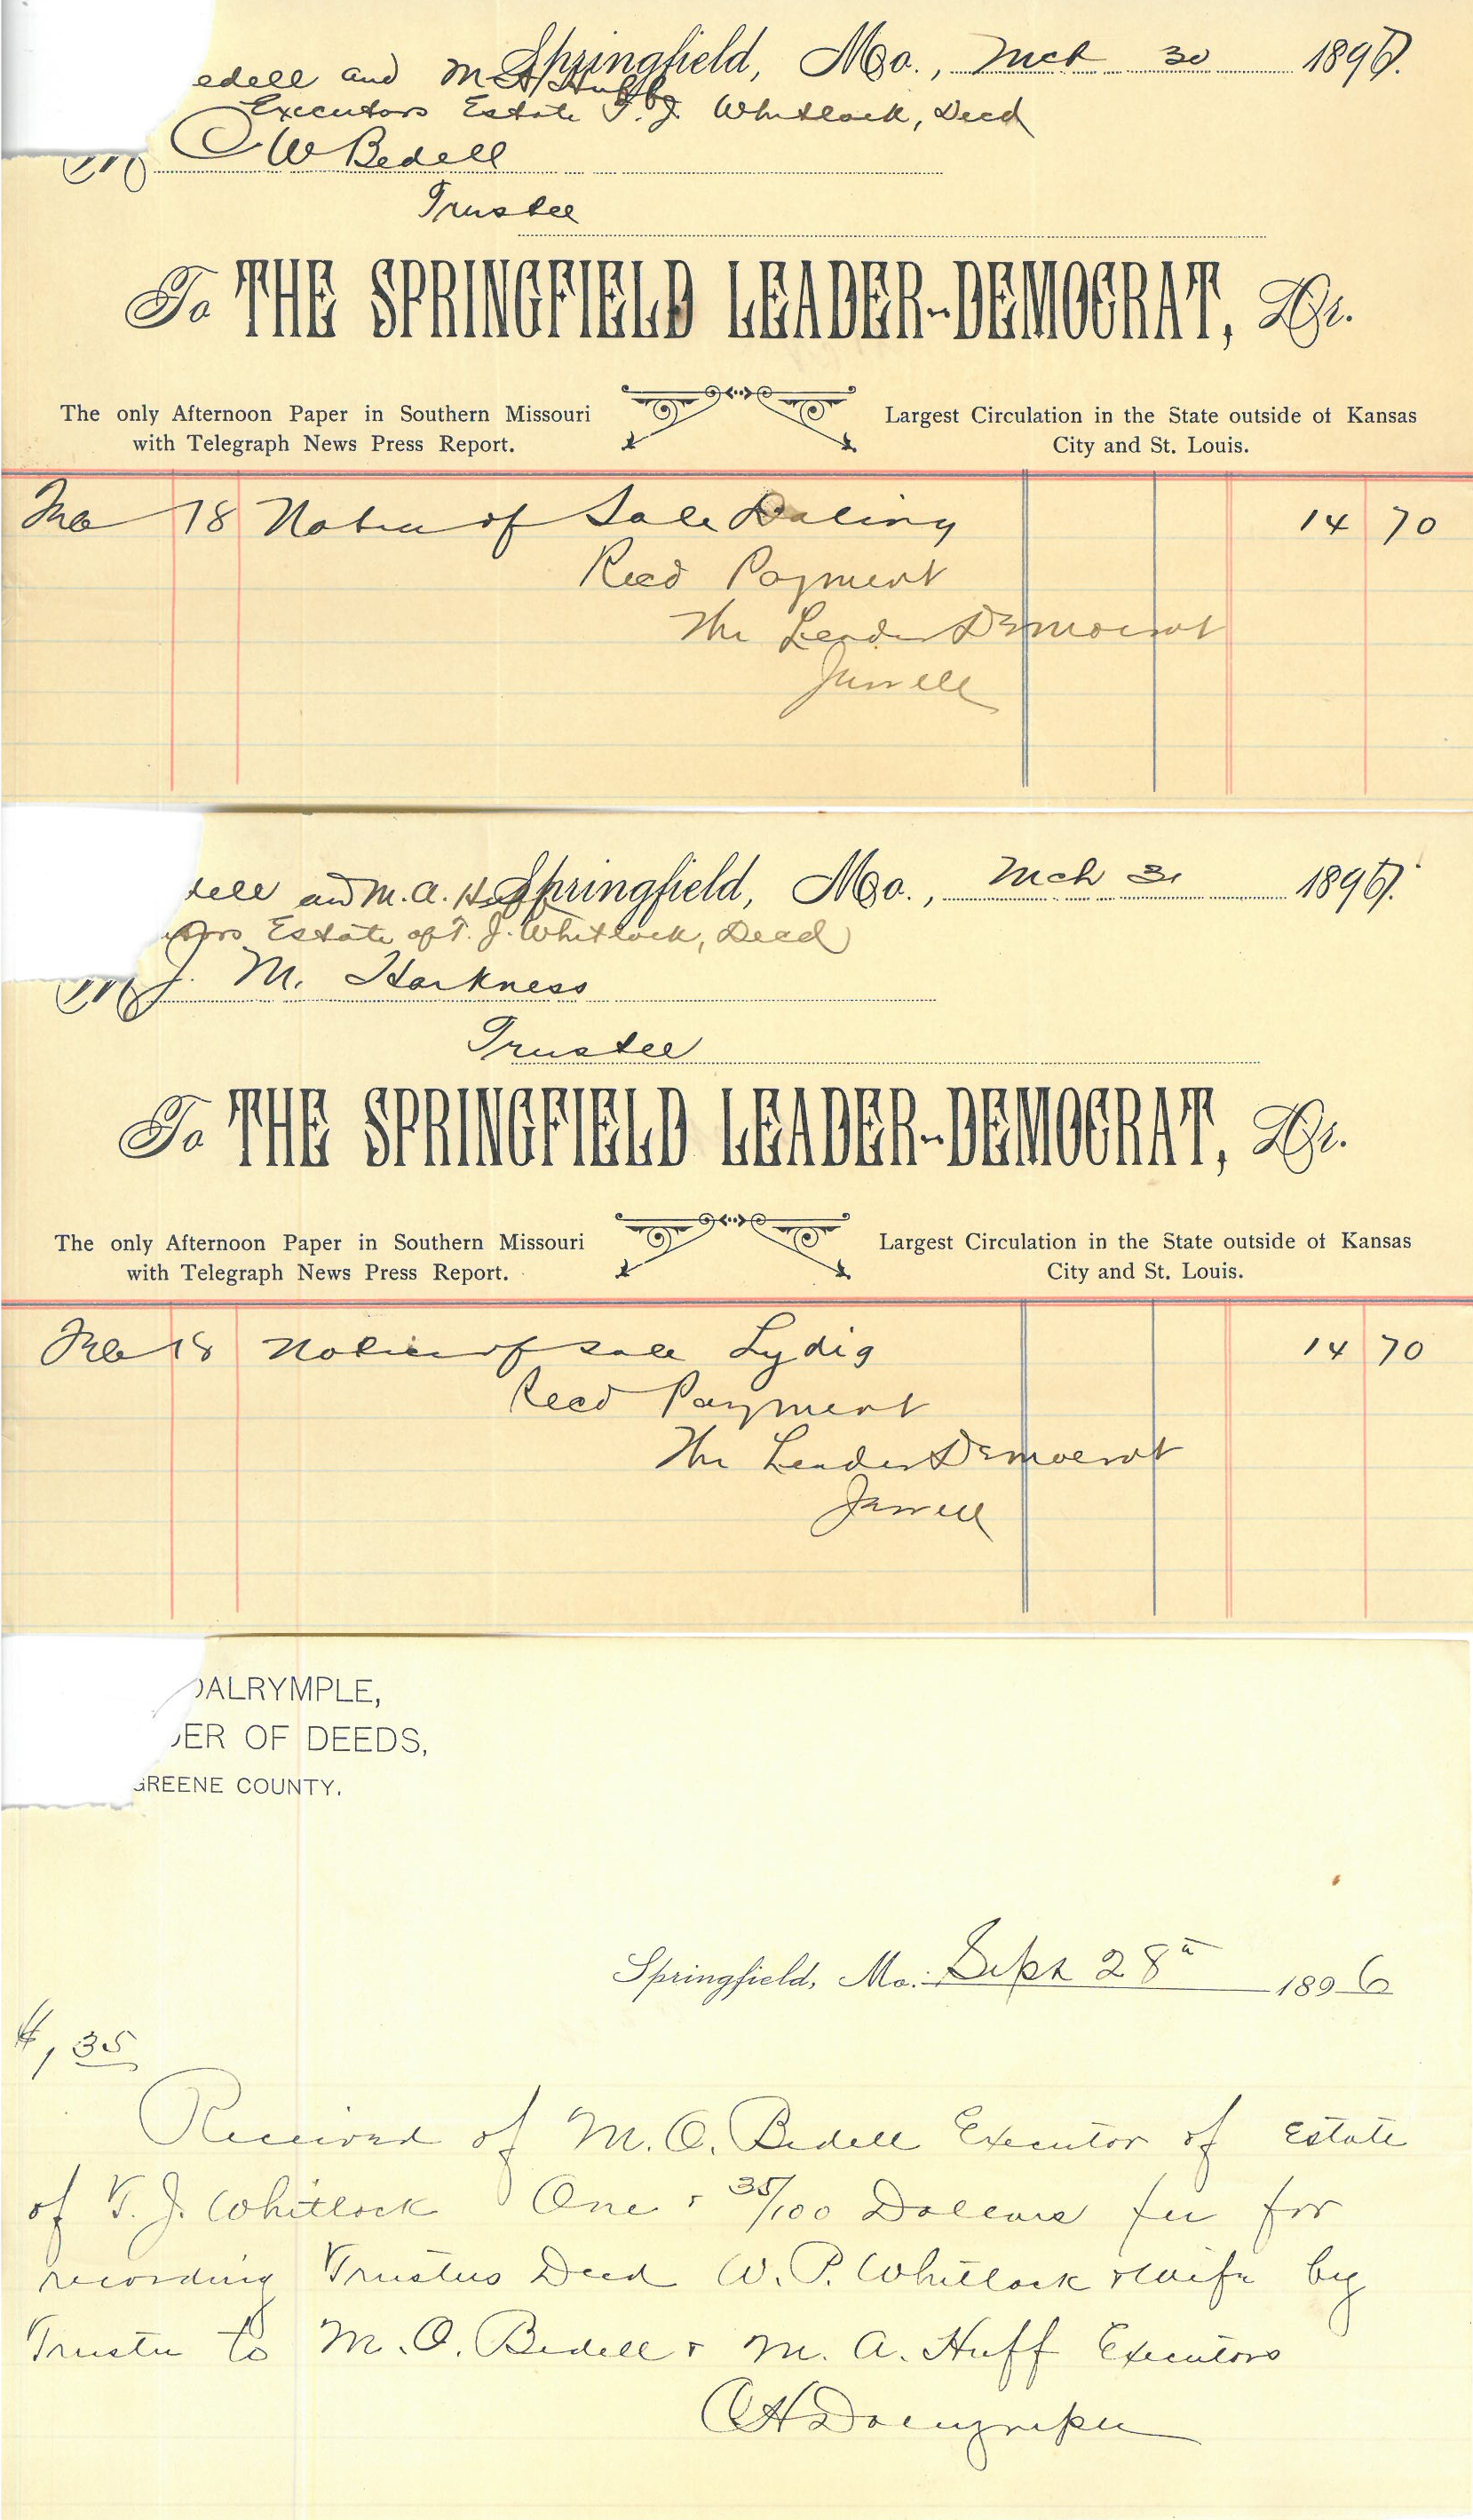 edell and M A Huff by
Springfield, Mo., Mch 30 1896.
Executors Estate T. J. Whitlock, Decd
M C W Bedell
Trustee
To THE SPRINGFIELD LEADER-DEMOCRAT, Dr.
The only Afternoon Paper in Southern Missouri
with Telegraph News Press Report.
Largest Circulation in the State outside of Kansas
City and St. Louis.
Feb 18 Notice of Sale 14 70
Recd Payment
The Leader Democrat
Jewell
dell and M. A. Huff
Springfield, Mo., Mch 31 1896.
tors Estate of T. J. Whitlock, Decd
M J. M. Harkness
Trustee
To THE SPRINGFIELD LEADER-DEMOCRAT, Dr.
The only Afternoon Paper in Southern Missouri
with Telegraph News Press Report.
Largest Circulation in the State outside of Kansas
City and St. Louis.
Feb 18 Notice of Sale Lydig 14 70
Recd Payment
The Leader Democrat
Jewell
DALRYMPLE,
DER OF DEEDS,
GREENE COUNTY.
Springfield, Mo. Sept 28th 1896
$1,35
Received of M. O. Bedell Executor of Estate
of T. J. Whitlock One & 35/100 Dollars fee for
recording Trustees Deed W. P. Whitlock & wife by
Trustee to M. O. Bedell & M. A. Huff Executors
C H Dalrymple